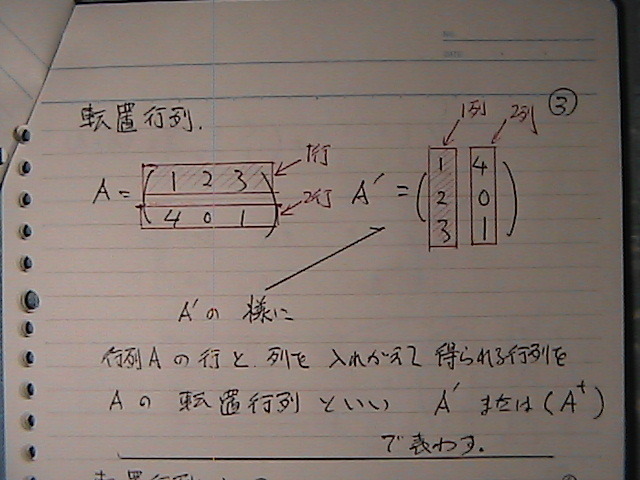 NO.
DATE
③
転置行列.
1行
2行
1列 2列
A = ( 1 2 3 )
( 4 0 1 )
A′ = ( 1 4
2 0
3 1 )
A′の 様に
行列Aの行と列を入れかえて得られる行列を
Aの転置行列といい A′または(A^t)
で表わす.